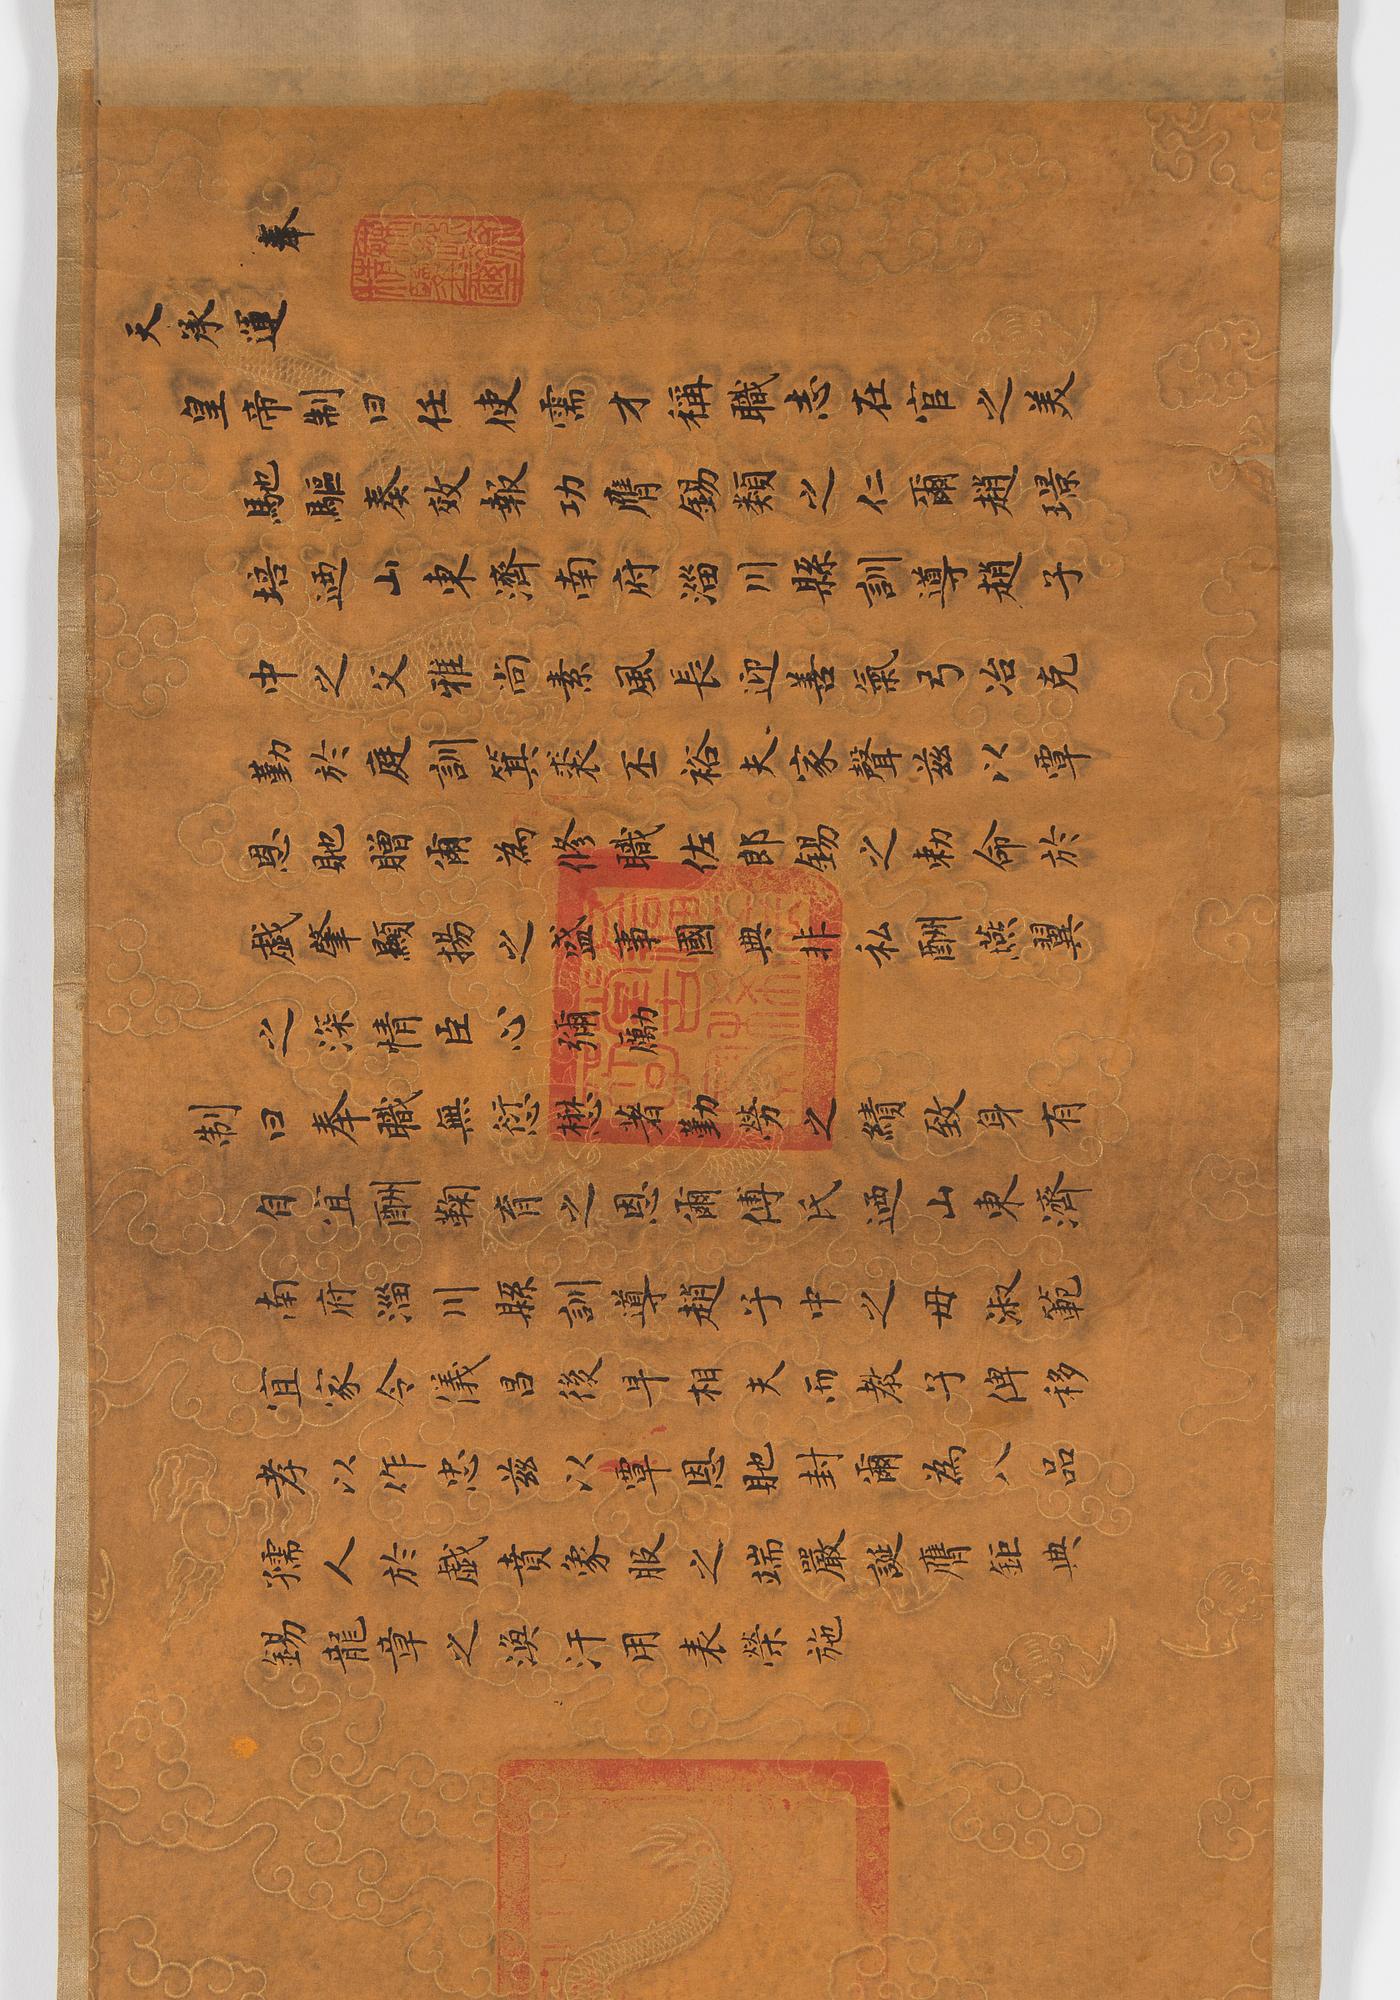 奉
天承運
皇帝制曰任使需才稱職志在官之美
馳驅奏效報功膺錫類之仁爾趙璟
培迺山東濟南府淄川縣訓導趙子
中之父雅尚素風長迎善氣弓冶克
勤於庭訓箕裘丕裕夫家聲兹以覃
恩貤贈爾為修職佐郎錫之勅命於
戲肇顯揚之盛事國典非私酬燕翼
之深情臣心彌勵
制曰奉職無愆懋著勤勞之績致身有
自宜酬鞠育之恩爾傅氏迺山東濟
南府淄川縣訓導趙子中之母淑範
宜家令儀昌後早相夫而教子俾移
孝以作忠兹以覃恩貤封爾為八品
孺人於戲賁象服之端嚴誕膺鉅典
錫龍章之渙汗用表榮施